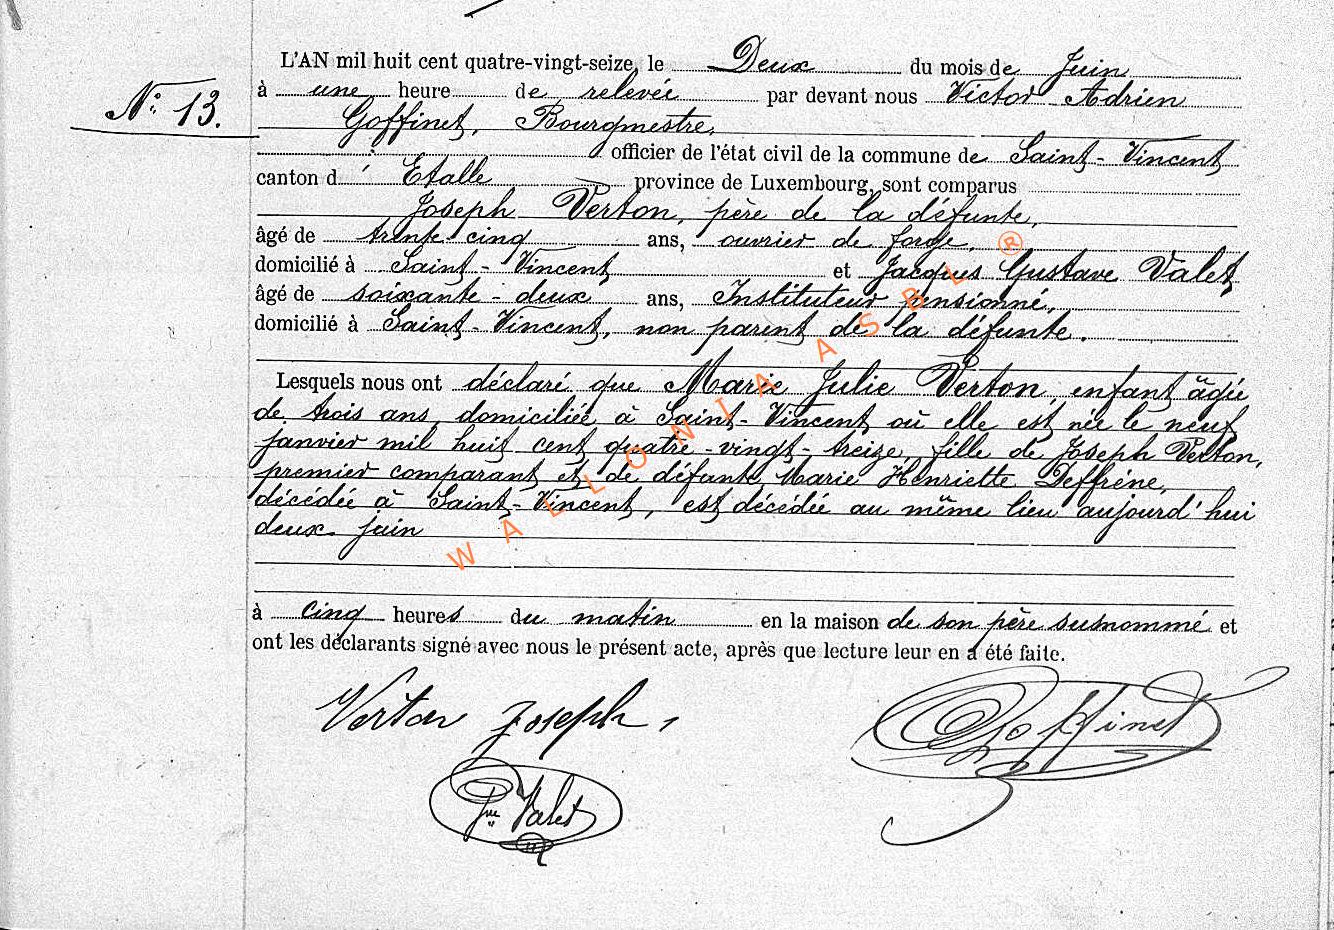 L'AN mil huit cent quatre-vingt-seize, le Deux du mois de Juin
N° 13.
à une heure de relevée par devant nous Victor Adrien
Goffinet, Bourgmestre,
officier de l'état civil de la commune de Saint-Vincent
canton d' Etalle province de Luxembourg, sont comparus
Joseph Verton, père de la défunte,
âgé de trente cinq ans, ouvrier de forge,
domicilié à Saint-Vincent et Jacques Gustave Valet
âgé de soixante-deux ans, Instituteur pensionné,
domicilié à Saint-Vincent, non parent de la défunte.
Lesquels nous ont déclaré que Marie Julie Verton, enfant âgée
de trois ans, domiciliée à Saint-Vincent où elle est née le neuf
janvier mil huit cent quatre-vingt-treize, fille de Joseph Verton,
premier comparant et de défunte Marie Henriette Deffrène,
décédée à Saint-Vincent, est décédée au même lieu aujourd'hui
deux juin
à cinq heures du matin en la maison de son père susnommé et
ont les déclarants signé avec nous le présent acte, après que lecture leur en a été faite.
Verton Joseph,
Goffinet
Valet
WALLONIA ASBL ®